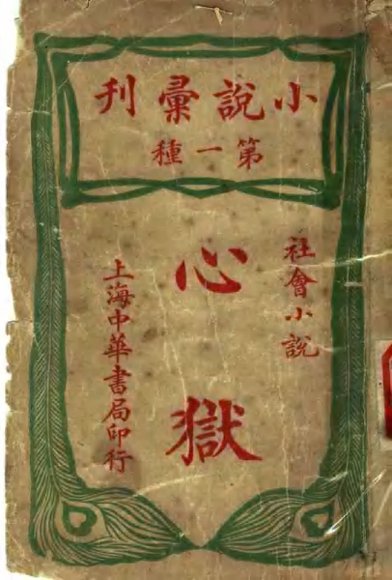 小說彙刊
第一種
社會小說
心獄
上海中華書局印行